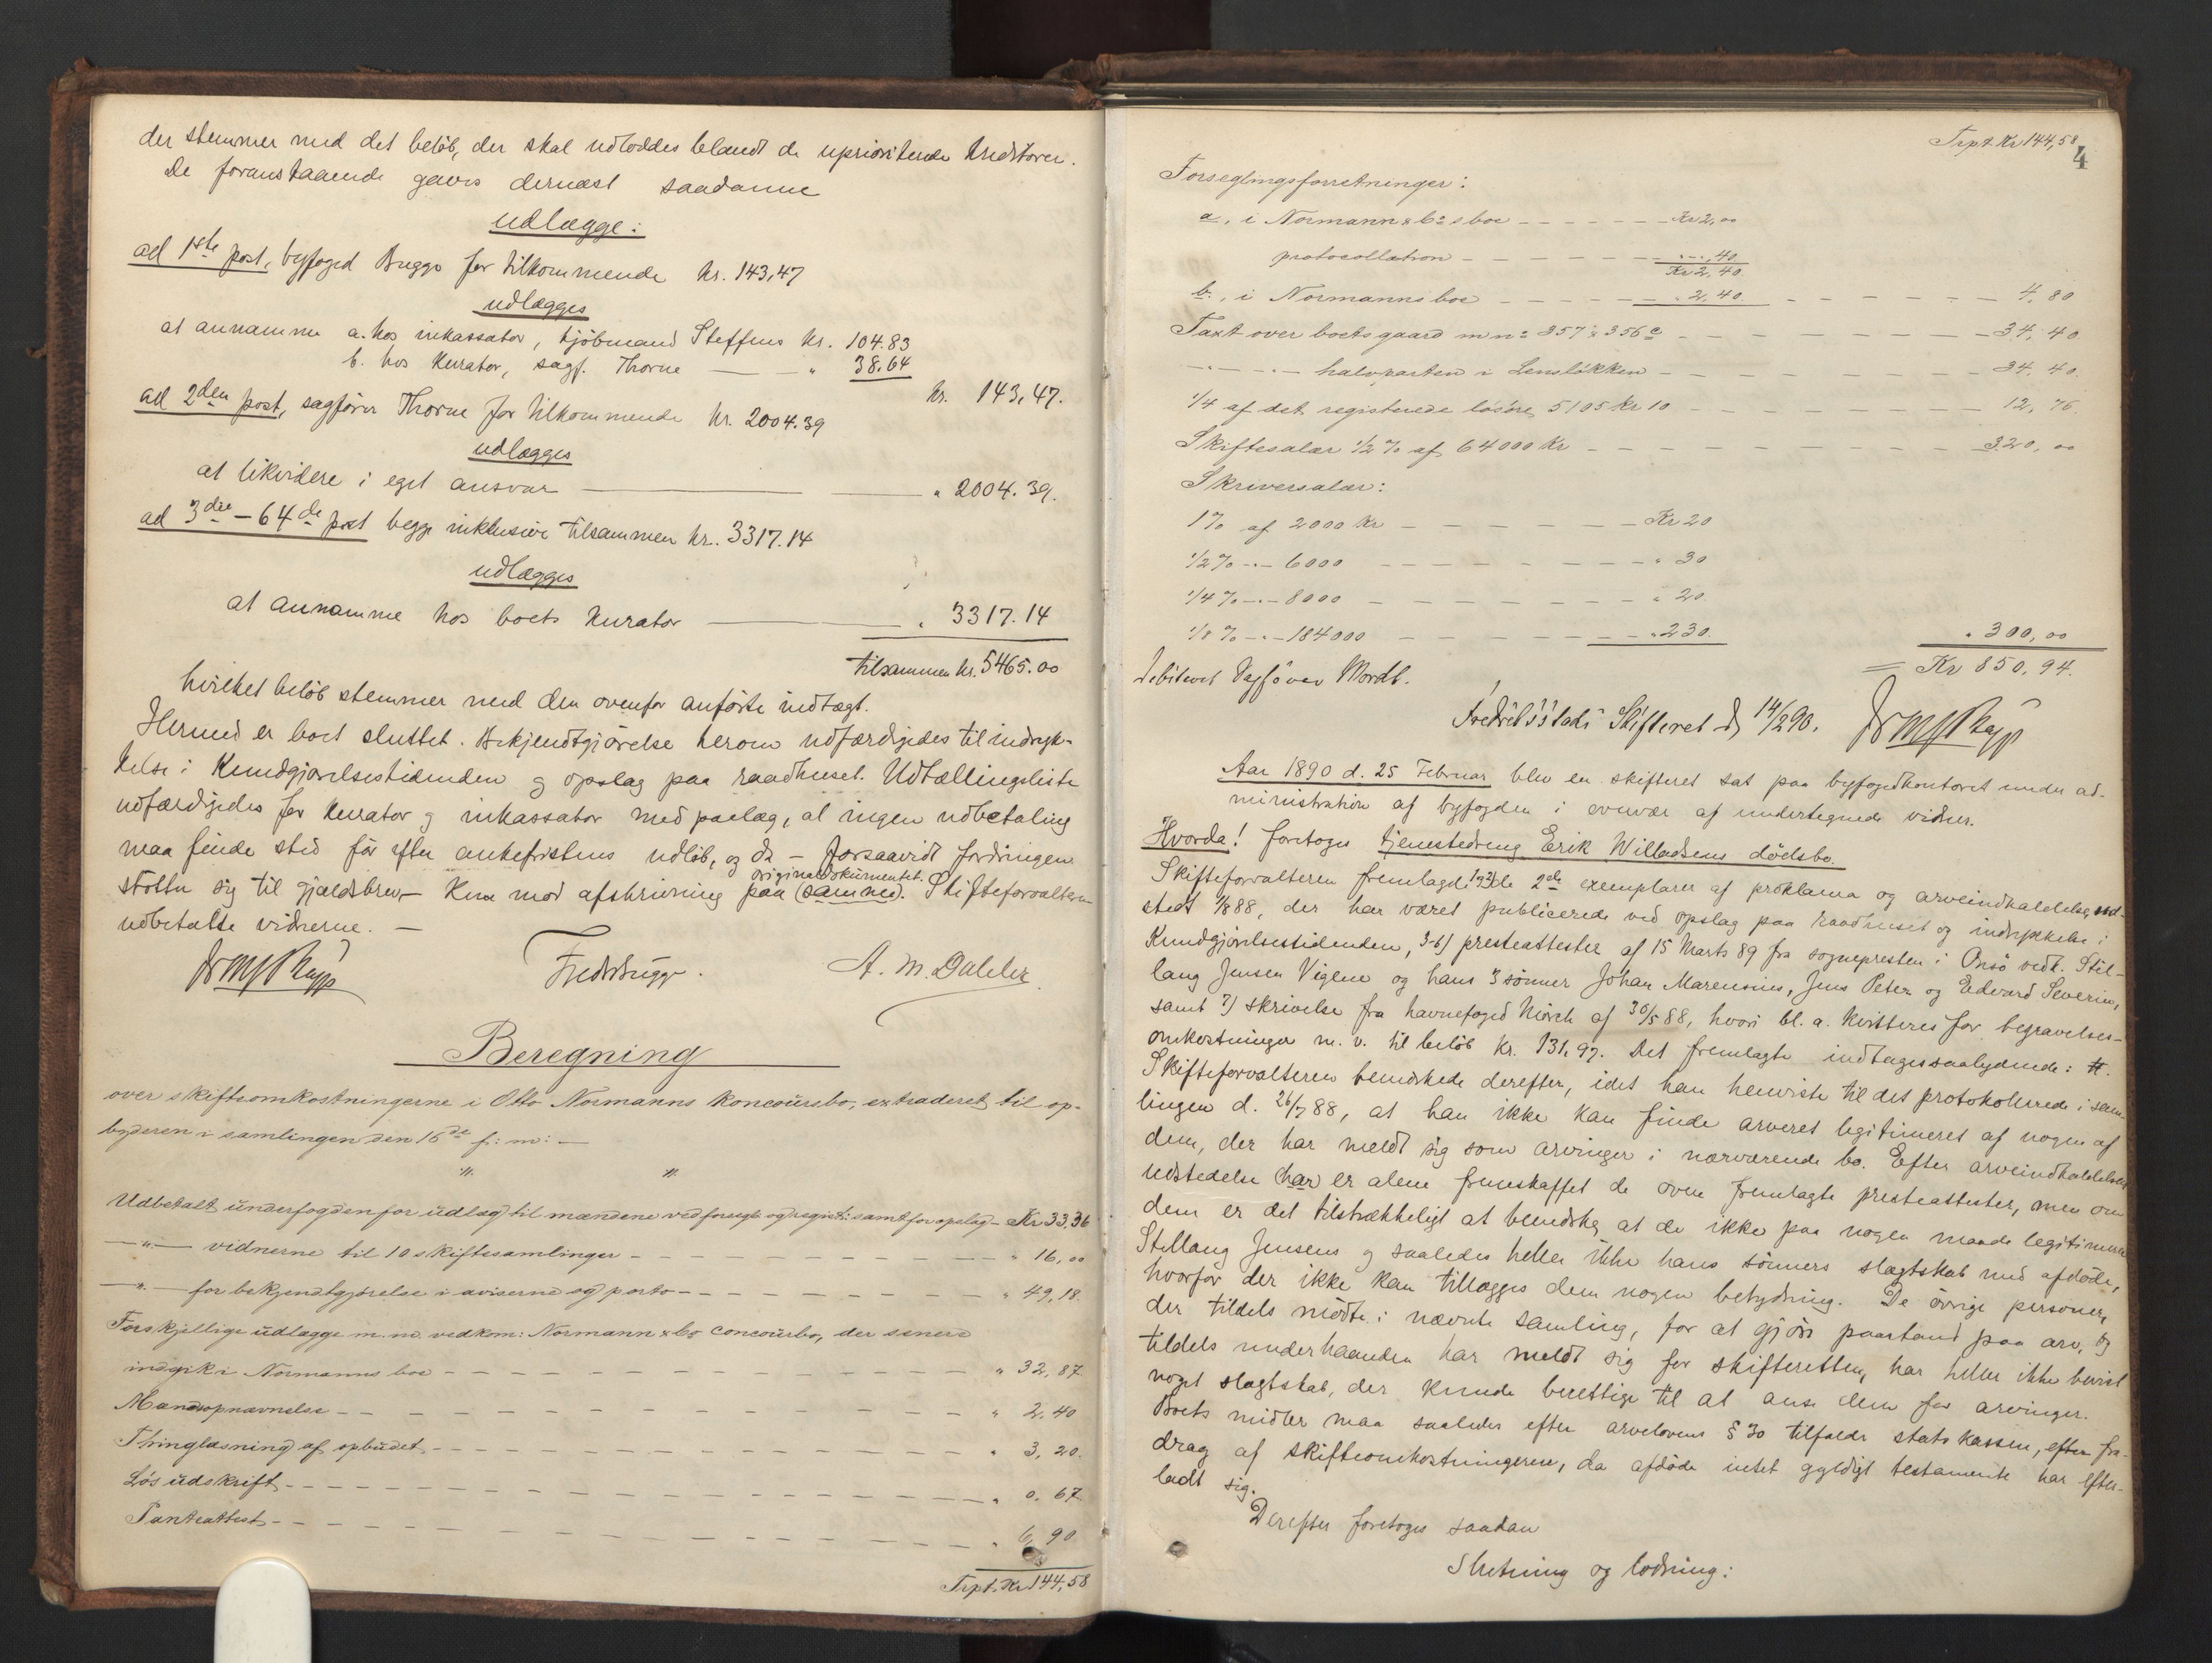 der stemmer med det beløb, der skal udloddes blandt de uprioriterede kreditorer.
De foranstaaende gaves dernæst saadanne
udlægge:
ad 1ste post, byfoged Bugge for tilkommende kr. 143,47
udlægges
at annamme a. hos inkassator, kjöbmand Steffens kr. 104.83
b. hos kurator, sagf. Thorne — " 38.64
kr. 143,47.
ad 2den post, sagförer Thorne for tilkommende kr. 2004.39
udlægges
at likvidere i eget ansvar — " 2004.39.
ad 3die – 64de post begge inklusive tilsammen kr. 3317.14
udlægges
at annamme hos boets kurator — " 3317.14
tilsammen kr. 5465.00
hvilket beløb stemmer med den ovenfor anförte indtægt.
Hermed er boet sluttet. Bekjendtgjörelse herom udfærdigedes til indryk-
kelse i Kundgjörelsestidenden og opslag paa raadhuset. Udtællingsliste
udfærdigedes for kurator og inkassator med paalæg, at ingen udbetaling
maa finde sted för efter ankefristens udlöb, og da – forsaavidt fordringen
originaldokumentet.
stötter sig til gjældsbrev – kun mod afskrivning paa (samme). Skifteforvalteren
udbetalte vidnerne. —
Fredr Bugge. A. M. Dahler
Beregning
over skifteomkostningerne i Otto Normanns koncoursbo, extraderet til op-
byderen i samlingen den 16de f: m: —
" "
Udbetalt underfogden for udlæg til mændene ved forsegl og regist: samt for opslag – Kr 33,36
—"— vidnerne til 10 skiftesamlinger – – – " 16,00
—"— for bekjendtgjörelse i aviserne og porto – – – " 49,18
Forskjellige udlægge m. m. vedkm: Normann & Co concoursbo, der senere
indgik i Normanns boe – – – " 32,87
Mandsopnævnelse – – – " 2.40
Thinglæsning af opbudet – – – " 3,20.
Lös udskrift – – – " 0.67
Panteattest – – – " 6,90
Trpt. Kr 144,58
Trpt. Kr 144,58
4
Forseglingsforretninger:
a, i Normann & Co s boe – – – Kr 2,00
protocollation – – – " –,40
Kr 2,40
b., i Normanns boe – – – " 2,40. – – – 4,80
Taxt over boets gaard m no 357 & 356c – – – 34,40
—"— halvparten i Lensløkken – – – 34,40.
1/4 af det registrerede lösöre, 5105 Kr 10 – – – 12,76.
Skiftesalær 1/2 % af 64000 Kr – – – 320,00
Skriversalær:
1% af 2000 Kr – – – Kr 20
1/2 % –"– 6000 – – – " 30
1/4 % –"– 8000 – – – " 20.
1/8 % –"– 184000 – – – " 230.
" 300,00
= Kr 850,94.
Debiteret Sagförer Mordt.
Fredrikstads Skifteret d 14/2 90.
Aar 1890 d. 25 Februar blev en skifteret sat paa byfogedkontoret under ad-
ministration af byfogden i overvær af undertegnede vidner.
Hvorda! foretoges tjenestedreng Erik Willadsens dödsbo.
Skifteforvalteren fremlagde 1 & 2) de 2de exemplarer af proklama og arveindkaldelse, ud-
stedt 1/8 88, der har været publicerede ved opslag paa raadhuset og indrykkelse i
Kundgjörelsestidenden, 3-6) presteattester af 15 Marts 89 fra sognepresten i Onsö vedk. Stil-
lang Jensen Viglene og hans 3 sönner Johan Marensius, Jens Peter og Edvard Severin,
samt 7) skrivelse fra havnefoged Mörch af 30/5 88, hvori bl. a. kvitteres for begravelses-
omkostninger m. v. til beløb kr. 131,97. Det fremlagte indtages saalydende: #.
Skifteforvalteren bemærkede derefter, idet han henviste til det protokollerede i sam-
lingen d. 26/7 88, at han ikke kan finde arveret legitimeret af nogen af
dem, der har meldt sig som arvinger i nærværende bo. Efter arveindkaldelsens
udstedelse (har er alene fremskaffet de oven fremlagte presteattester, men om
dem er det tilstrækkeligt at bemærke, at de ikke paa nogen maade legitimerer
Stillang Jensens og saaledes heller ikke hans sönners slægtskab med afdöde,
hvorfor der ikke kan tillægges dem nogen betydning. De övrige personer,
der tildels mödte i nævnte samling, for at gjöre paastand paa arv, og
tildels underhaanden har meldt sig for skifteretten, har heller ikke bevist
noget slægtskab, der kunde berettige til at anse dem for arvinger.
Boets midler maa saaledes efter arvelovens § 30 tilfalde statskassen, efter fra-
drag af skifteomkostningerne, da afdöde intet gyldigt testamente har efter-
ladt sig.
Derefter foretoges saadan
Slutning og lodning: